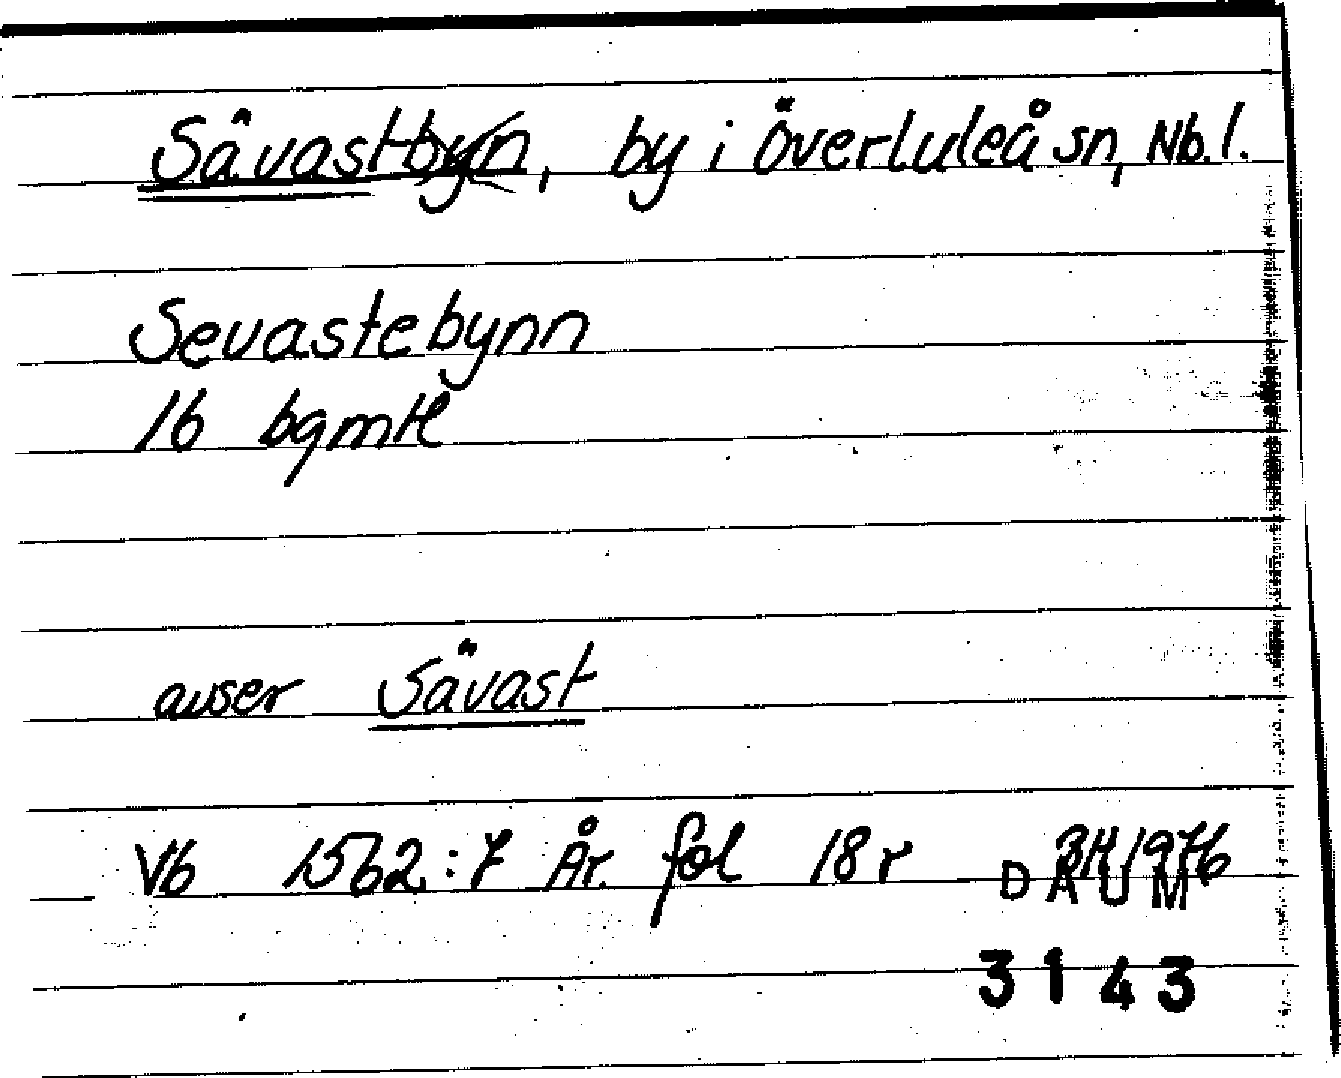 Sävastbyn, by i Överluleå sn, Nb. l.
Sevastebynn
16 bgmtl
avser Sävast
Vb 1562:7 År. fol 18r BH 1976
DAUM
3143